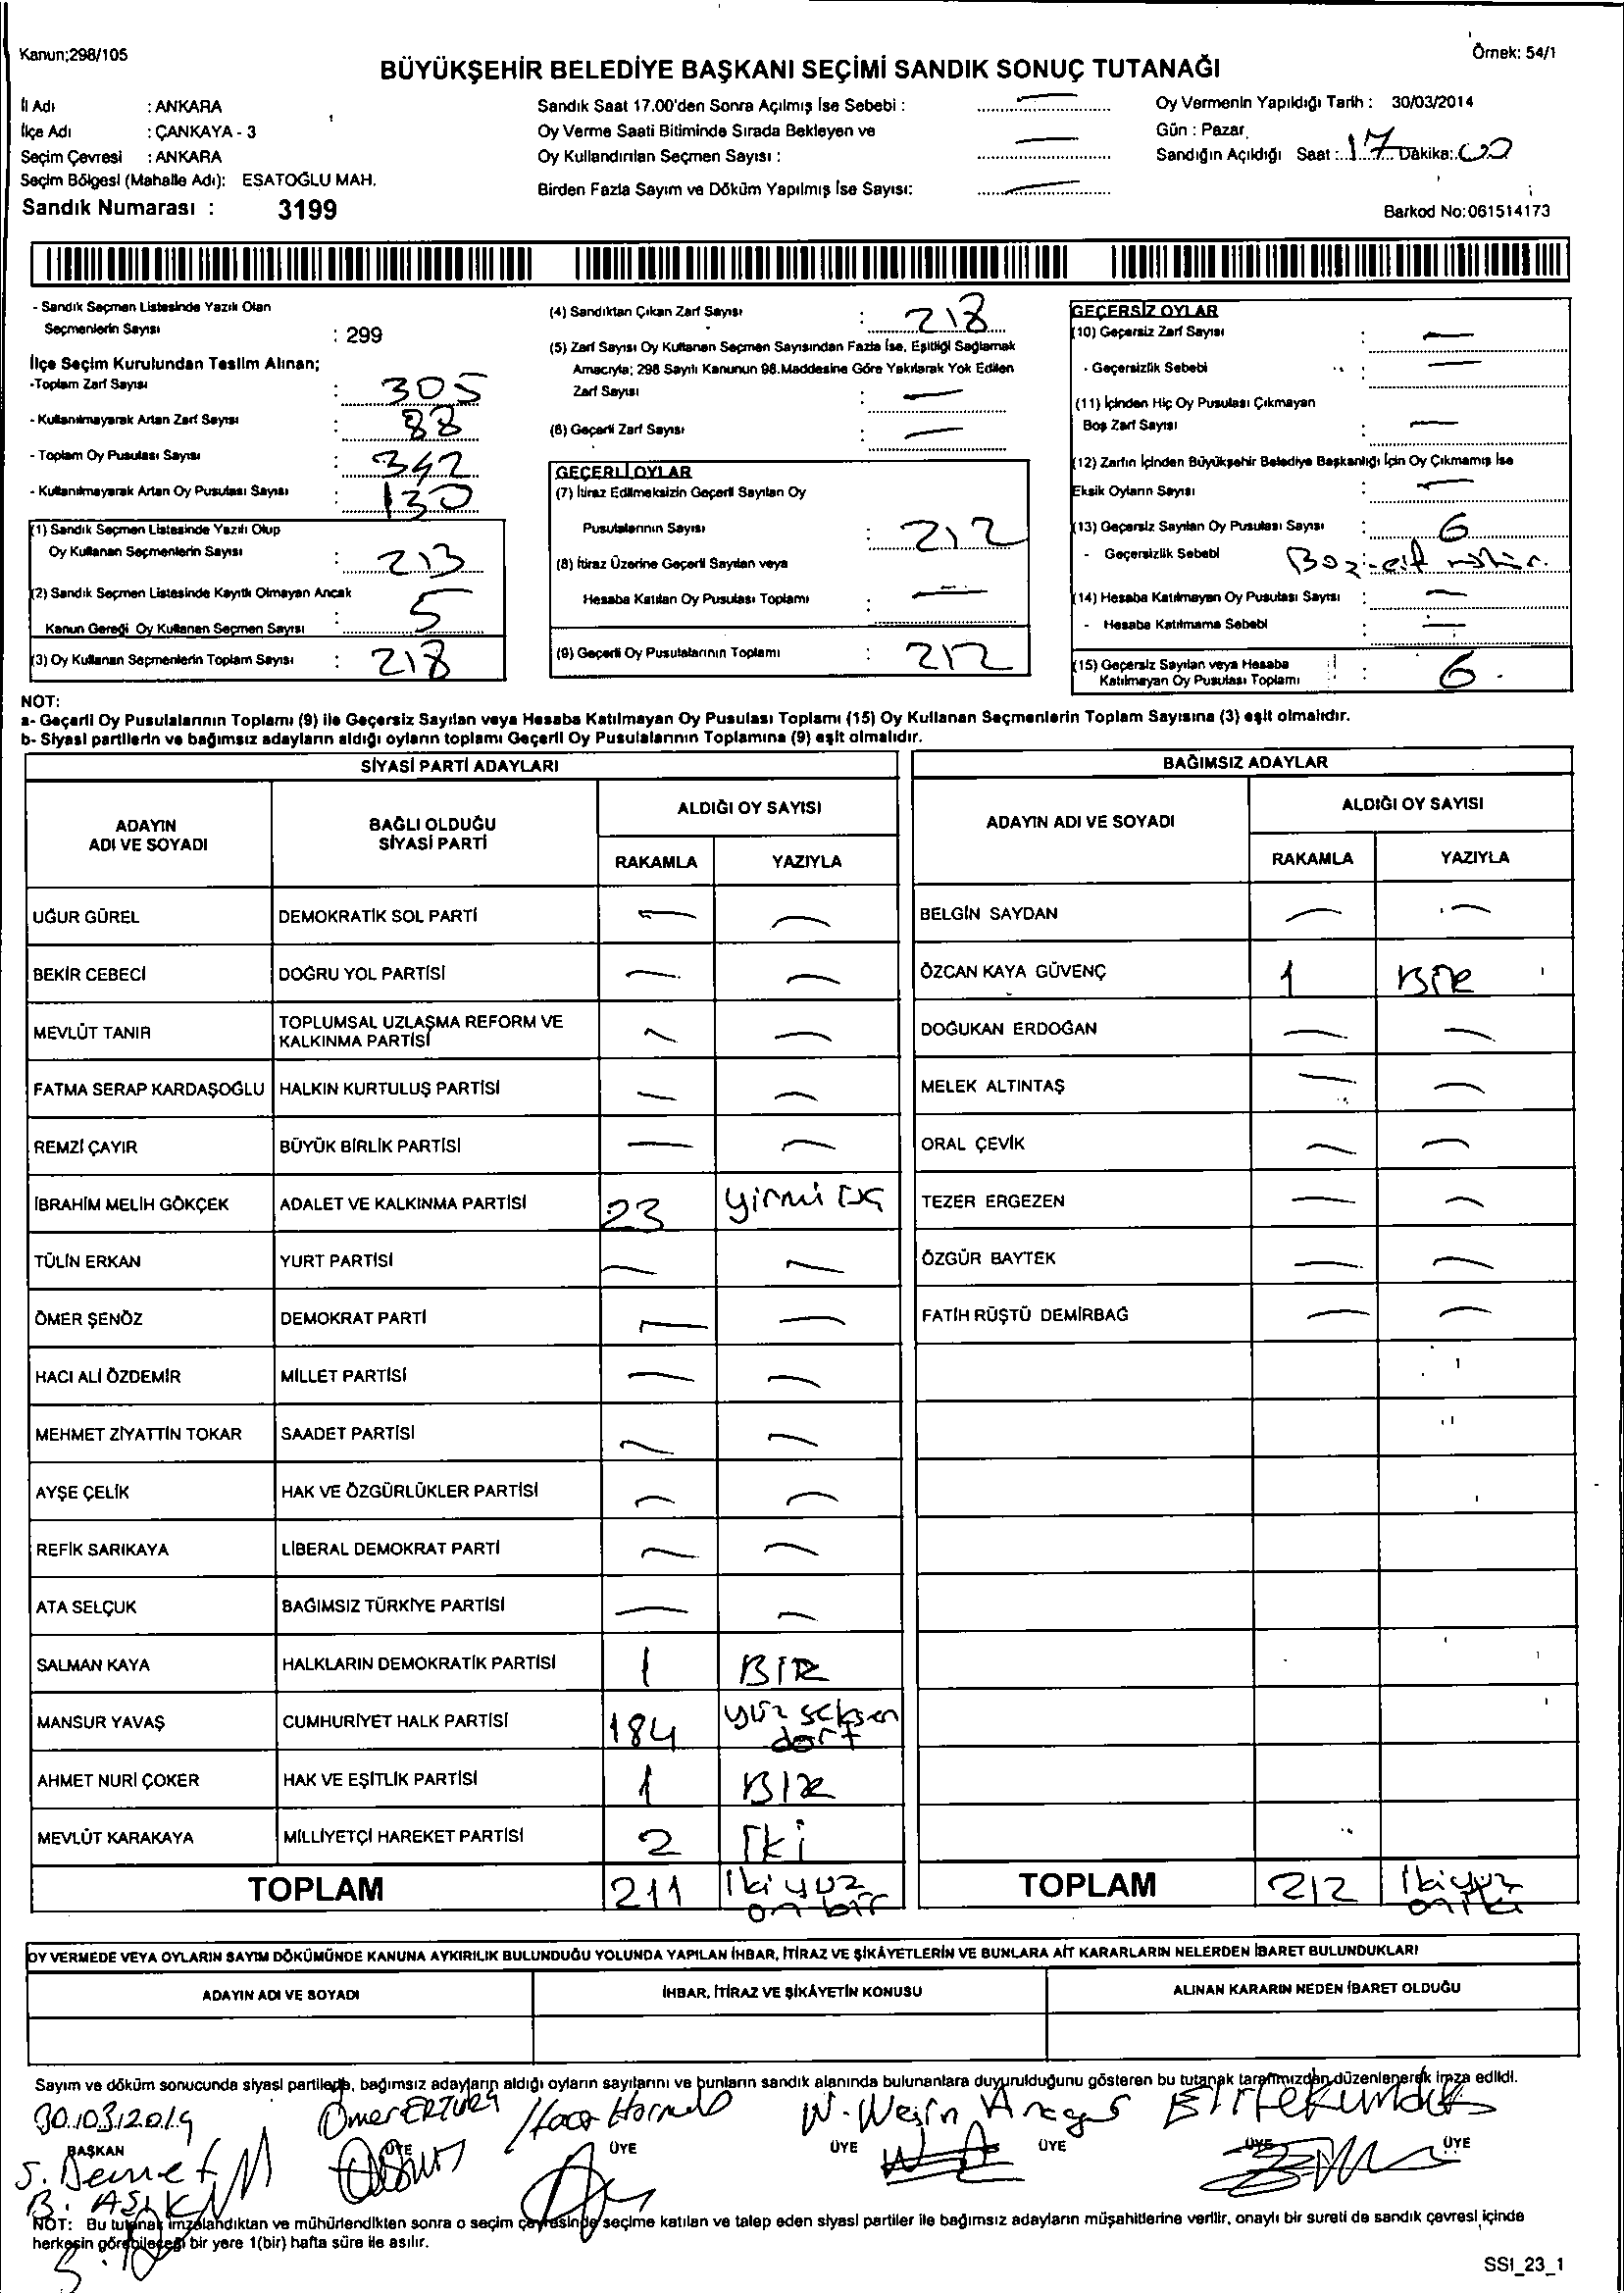 Kanun;298/105
Örnek: 54/1
BÜYÜKŞEHİR BELEDİYE BAŞKANI SEÇİMİ SANDIK SONUÇ TUTANAĞI
İl Adı : ANKARA
İlçe Adı : ÇANKAYA - 3
Seçim Çevresi : ANKARA
Seçim Bölgesi (Mahalle Adı): ESATOĞLU MAH.
Sandık Numarası : 3199
Sandık Saat 17.00'den Sonra Açılmış İse Sebebi : —
Oy Verme Saati Bitiminde Sırada Bekleyen ve
Oy Kullandırılan Seçmen Sayısı : —
Birden Fazla Sayım ve Döküm Yapılmış İse Sayısı: —
Oy Vermenin Yapıldığı Tarih : 30/03/2014
Gün : Pazar
Sandığın Açıldığı Saat : 17 Dakika: 00
Barkod No:061514173
- Sandık Seçmen Listesinde Yazılı Olan
Seçmenlerin Sayısı : 299
İlçe Seçim Kurulundan Teslim Alınan;
-Toplam Zarf Sayısı : 305
- Kullanılmayarak Artan Zarf Sayısı : 88
- Toplam Oy Pusulası Sayısı : 342
- Kullanılmayarak Artan Oy Pusulası Sayısı : 130
(1) Sandık Seçmen Listesinde Yazılı Olup
Oy Kullanan Seçmenlerin Sayısı : 213
(2) Sandık Seçmen Listesinde Kayıtlı Olmayan Ancak
Kanun Gereği Oy Kullanan Seçmen Sayısı : 5
(3) Oy Kullanan Seçmenlerin Toplam Sayısı : 218
(4) Sandıktan Çıkan Zarf Sayısı : 218
(5) Zarf Sayısı Oy Kullanan Seçmen Sayısından Fazla İse, Eşitliği Sağlamak
Amacıyla; 298 Sayılı Kanunun 98.Maddesine Göre Yakılarak Yok Edilen
Zarf Sayısı : —
(6) Geçerli Zarf Sayısı : —
GEÇERLİ OYLAR
(7) İtiraz Edilmeksizin Geçerli Sayılan Oy
Pusulalarının Sayısı : 212
(8) İtiraz Üzerine Geçerli Sayılan veya
Hesaba Katılan Oy Pusulası Toplamı : —
(9) Geçerli Oy Pusulalarının Toplamı : 212
GEÇERSİZ OYLAR
(10) Geçersiz Zarf Sayısı : —
- Geçersizlik Sebebi : —
(11) İçinden Hiç Oy Pusulası Çıkmayan
Boş Zarf Sayısı : —
(12) Zarfın İçinden Büyükşehir Belediye Başkanlığı İçin Oy Çıkmamış İse
Eksik Oyların Sayısı : —
(13) Geçersiz Sayılan Oy Pusulası Sayısı : 6
- Geçersizlik Sebebi
(14) Hesaba Katılmayan Oy Pusulası Sayısı : —
- Hesaba Katılmama Sebebi : —
(15) Geçersiz Sayılan veya Hesaba
Katılmayan Oy Pusulası Toplamı : 6.
NOT:
a- Geçerli Oy Pusulalarının Toplamı (9) ile Geçersiz Sayılan veya Hesaba Katılmayan Oy Pusulası Toplamı (15) Oy Kullanan Seçmenlerin Toplam Sayısına (3) eşit olmalıdır.
b- Siyasi partilerin ve bağımsız adayların aldığı oyların toplamı Geçerli Oy Pusulalarının Toplamına (9) eşit olmalıdır.
SİYASİ PARTİ ADAYLARI
ADAYIN ADI VE SOYADI
BAĞLI OLDUĞU SİYASİ PARTİ
ALDIĞI OY SAYISI
RAKAMLA YAZIYLA
UĞUR GÜREL DEMOKRATİK SOL PARTİ — —
BEKİR CEBECİ DOĞRU YOL PARTİSİ — —
MEVLÜT TANIR TOPLUMSAL UZLAŞMA REFORM VE
KALKINMA PARTİSİ — —
FATMA SERAP KARDAŞOĞLU HALKIN KURTULUŞ PARTİSİ — —
REMZİ ÇAYIR BÜYÜK BİRLİK PARTİSİ — —
İBRAHİM MELİH GÖKÇEK ADALET VE KALKINMA PARTİSİ 23 yirmi üç
TÜLİN ERKAN YURT PARTİSİ — —
ÖMER ŞENÖZ DEMOKRAT PARTİ — —
HACI ALİ ÖZDEMİR MİLLET PARTİSİ — —
MEHMET ZİYATTİN TOKAR SAADET PARTİSİ — —
AYŞE ÇELİK HAK VE ÖZGÜRLÜKLER PARTİSİ — —
REFİK SARIKAYA LİBERAL DEMOKRAT PARTİ — —
ATA SELÇUK BAĞIMSIZ TÜRKİYE PARTİSİ — —
SALMAN KAYA HALKLARIN DEMOKRATİK PARTİSİ 1 BİR
MANSUR YAVAŞ CUMHURİYET HALK PARTİSİ 184 yüz seksen
dört
AHMET NURİ ÇOKER HAK VE EŞİTLİK PARTİSİ 1 BİR
MEVLÜT KARAKAYA MİLLİYETÇİ HAREKET PARTİSİ 2 İki
TOPLAM 211 ikiyüz
on bir
BAĞIMSIZ ADAYLAR
ADAYIN ADI VE SOYADI
ALDIĞI OY SAYISI
RAKAMLA YAZIYLA
BELGİN SAYDAN — —
ÖZCAN KAYA GÜVENÇ 1 BİR
DOĞUKAN ERDOĞAN — —
MELEK ALTINTAŞ — —
ORAL ÇEVİK — —
TEZER ERGEZEN — —
ÖZGÜR BAYTEK — —
FATİH RÜŞTÜ DEMİRBAĞ — —
TOPLAM 212 ikiyüz
oniki
OY VERMEDE VEYA OYLARIN SAYIM DÖKÜMÜNDE KANUNA AYKIRILIK BULUNDUĞU YOLUNDA YAPILAN İHBAR, İTİRAZ VE ŞİKÂYETLERİN VE BUNLARA AİT KARARLARIN NELERDEN İBARET BULUNDUKLARI
ADAYIN ADI VE SOYADI İHBAR, İTİRAZ VE ŞİKÂYETİN KONUSU ALINAN KARARIN NEDEN İBARET OLDUĞU
Sayım ve döküm sonucunda siyasi partilerle, bağımsız adayların aldığı oyların sayılarını ve bunların sandık alanında bulunanlara duyurulduğunu gösteren bu tutanak tarafımızdan düzenlenerek imza edildi.
Ömer ERTÜRK
BAŞKAN ÜYE ÜYE ÜYE ÜYE ÜYE ÜYE
NOT: Bu tutanak imzalandıktan ve mühürlendikten sonra o seçim çevresinde seçime katılan ve talep eden siyasi partiler ile bağımsız adayların müşahitlerine verilir, onaylı bir sureti de sandık çevresi içinde
herkesin görebileceği bir yere 1(bir) hafta süre ile asılır.
SSI_23_1